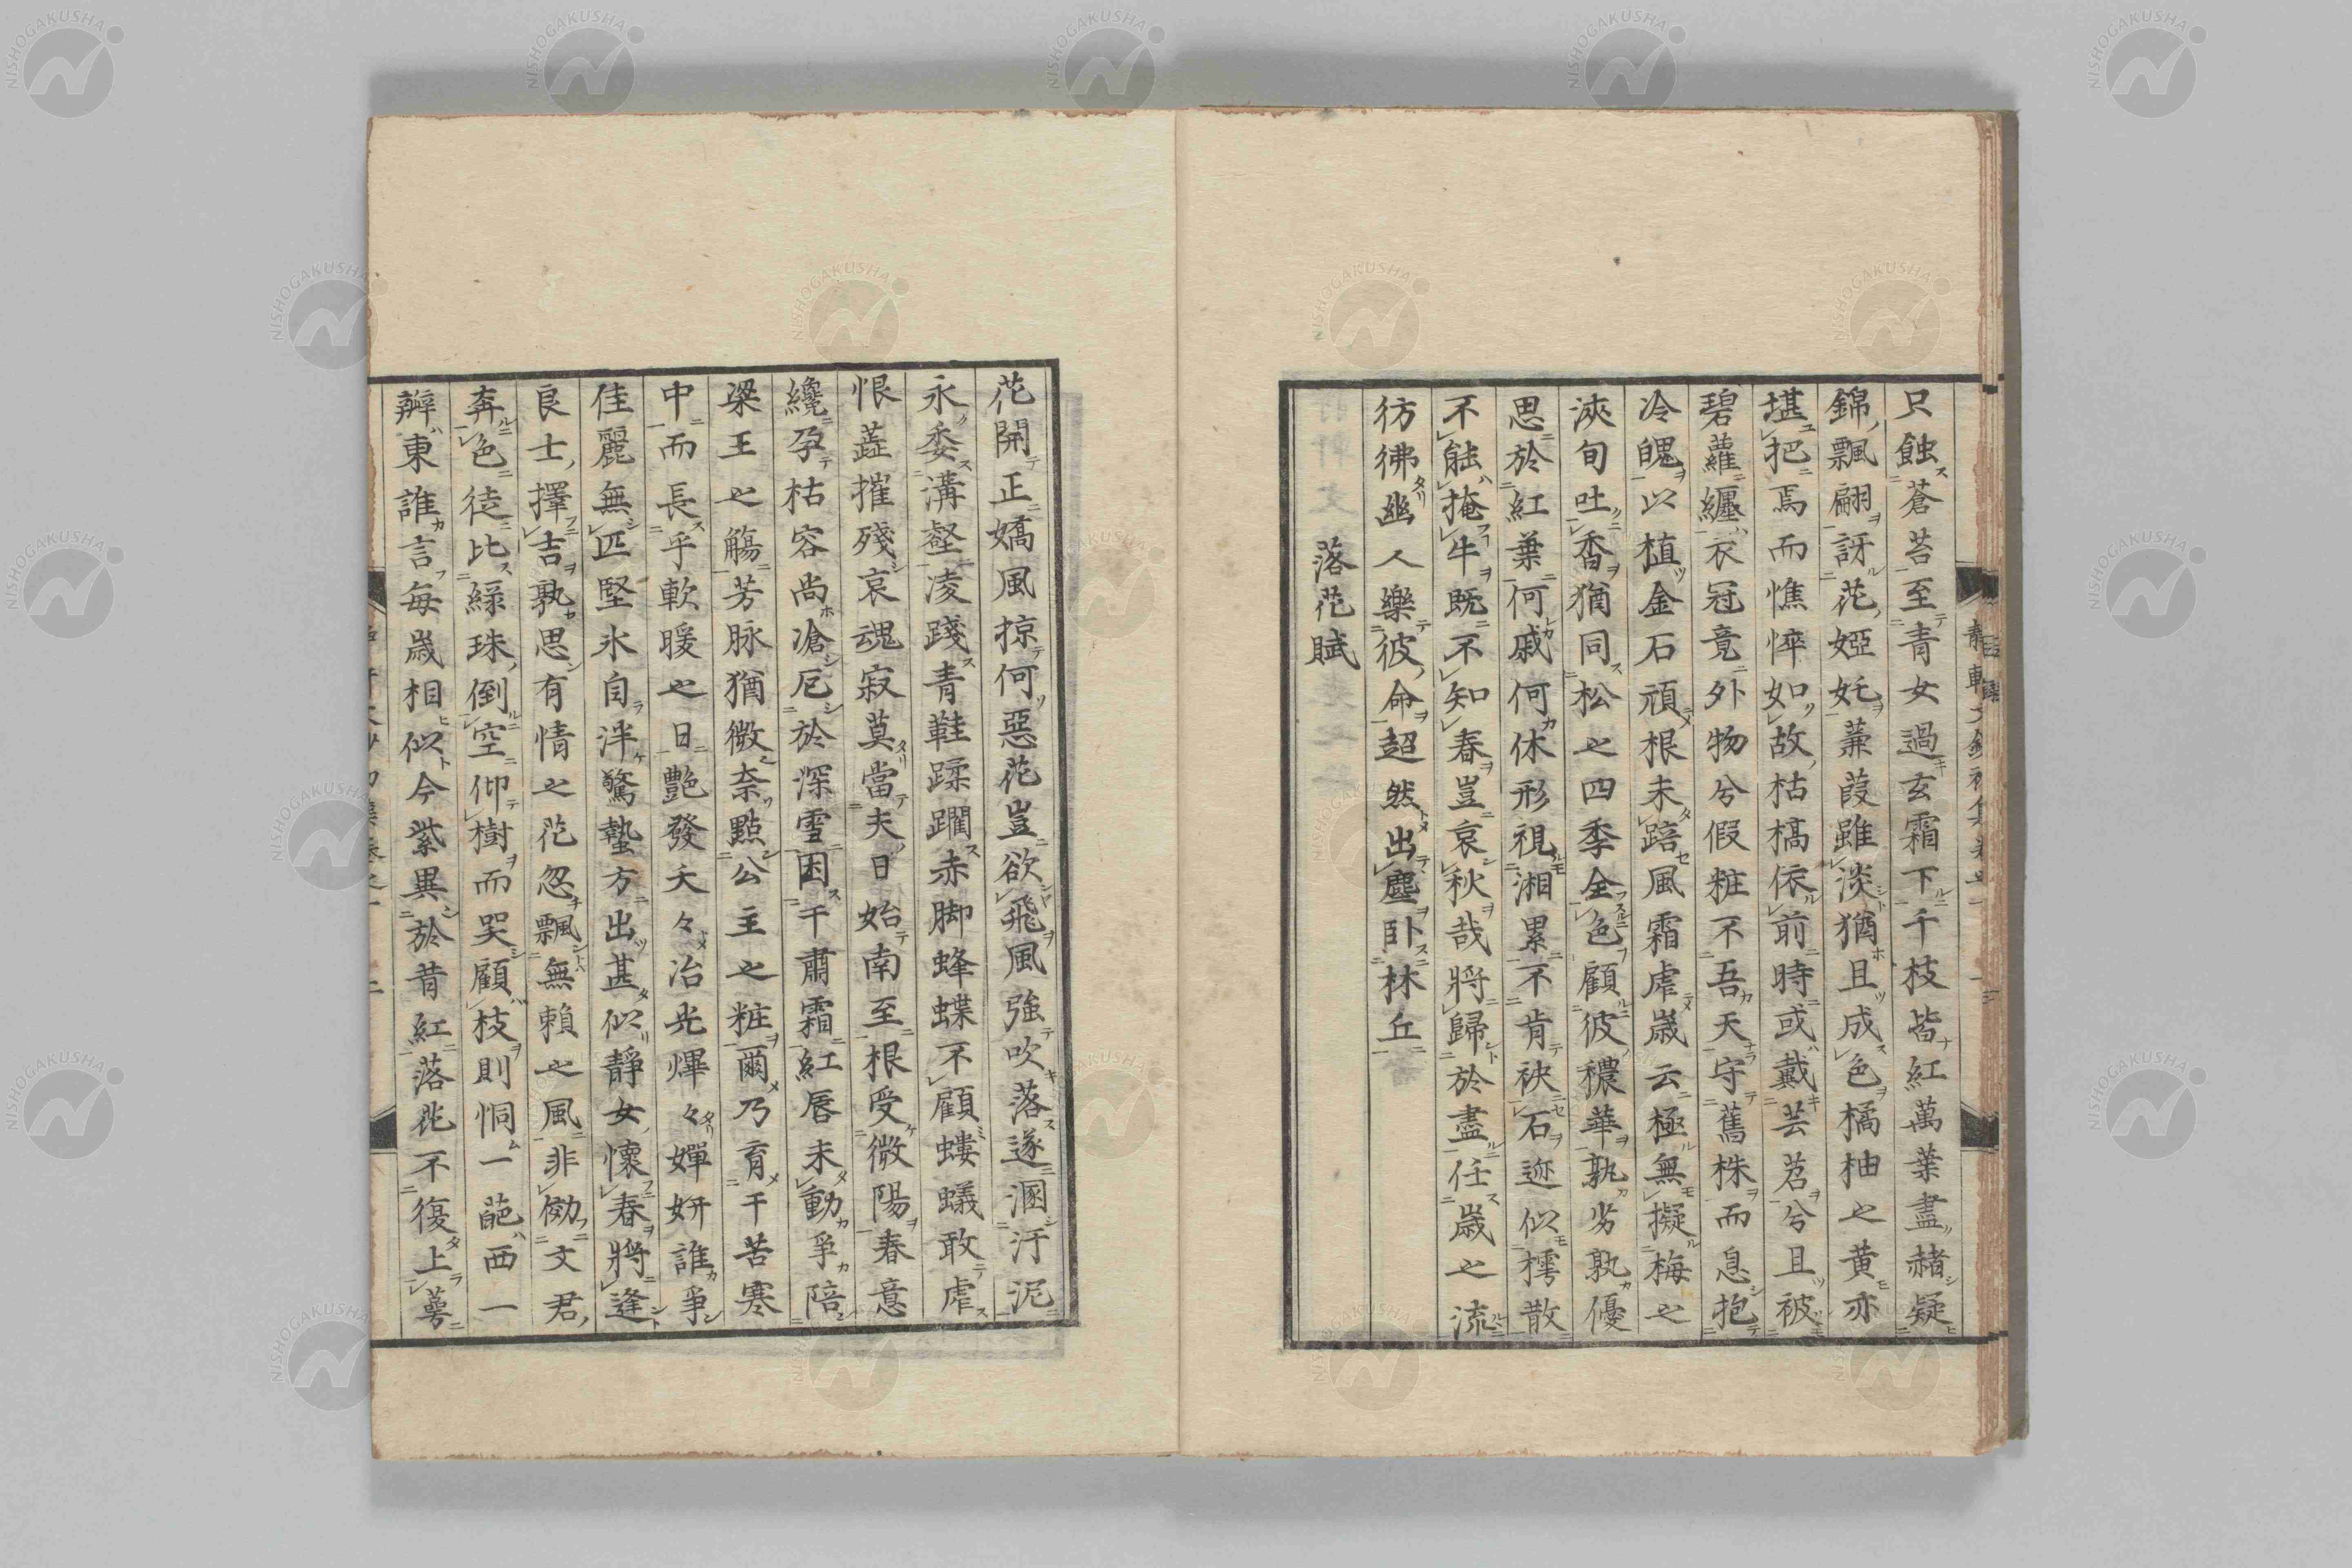 只蝕蒼苔至青女過玄霜下千枝皆紅萬葉盡赭疑
錦飄翩訝花婭奼蒹葭雖淡猶且成色橘柚之黄亦
堪把焉而憔悴如故枯槁依前時或戴芸苕兮且被
碧蘿纒衣冠竟外物兮假粧不吾天守舊株而息抱
冷魄以植金石頑根未踣風霜虐歳云極無擬梅之
浹旬吐香猶同松之四季全色顧彼穠華孰劣孰優
思於紅葉何戚何休形視湘累不肯袂石迹似樗散
不能掩牛既不知春豈哀秋哉將歸於盡任歳之流
彷彿幽人樂彼命超然出塵臥林丘
落花賦
花開正嬌風掠何惡花豈欲飛風強吹落遂溷汙泥
永委溝壑凌踐青鞋蹂躙赤脚蜂蝶不顧螻蟻敢虐
恨蕋摧殘哀魂寂莫當夫日始南至根受微陽春意
纔孕枯容尚滄厄於深雪困干肅霜紅唇未動爭陪
梁王之觴芳脉猶微奈點公主之粧爾乃育干苦寒
中而長乎軟暖之日艷發夭々冶光燁々嬋妍誰爭
佳麗無匹堅氷自泮驚蟄方出甚似靜女懷春將逢
良士擇吉孰思有情之花忽飄無賴之風非傚文君
奔色徒比緑珠倒空仰樹而哭顧枝則恫一葩西一
辨東誰言毎歳相似今紫異於昔紅落花不復上萼